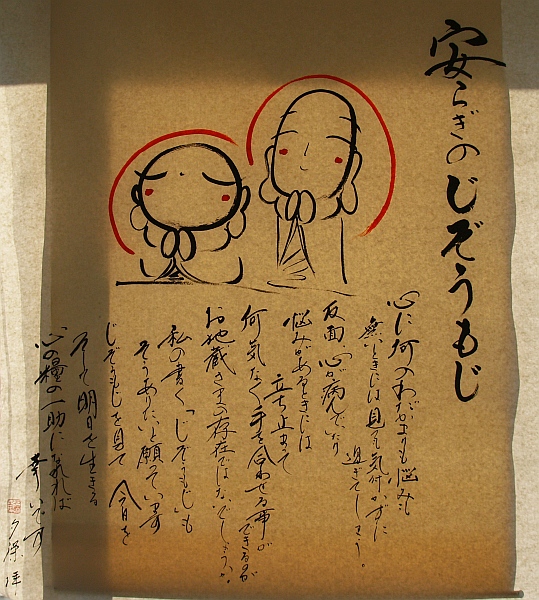 安らぎのじぞうもじ
心に何のわだかまりも悩みも
無いときには見ても気付かずに
過ぎてしまう。
反面、心が病んでいたり
悩みがあるときには
立ち止まって
何気なく手を合わせる事が
できるのが
お地蔵さまの存在ではないでしょうか。
私の書く「じぞうもじ」も
そうありたいと願っています
じぞうもじを見て 今日を
そして明日を生きる
心の糧の一助になれば
幸いです